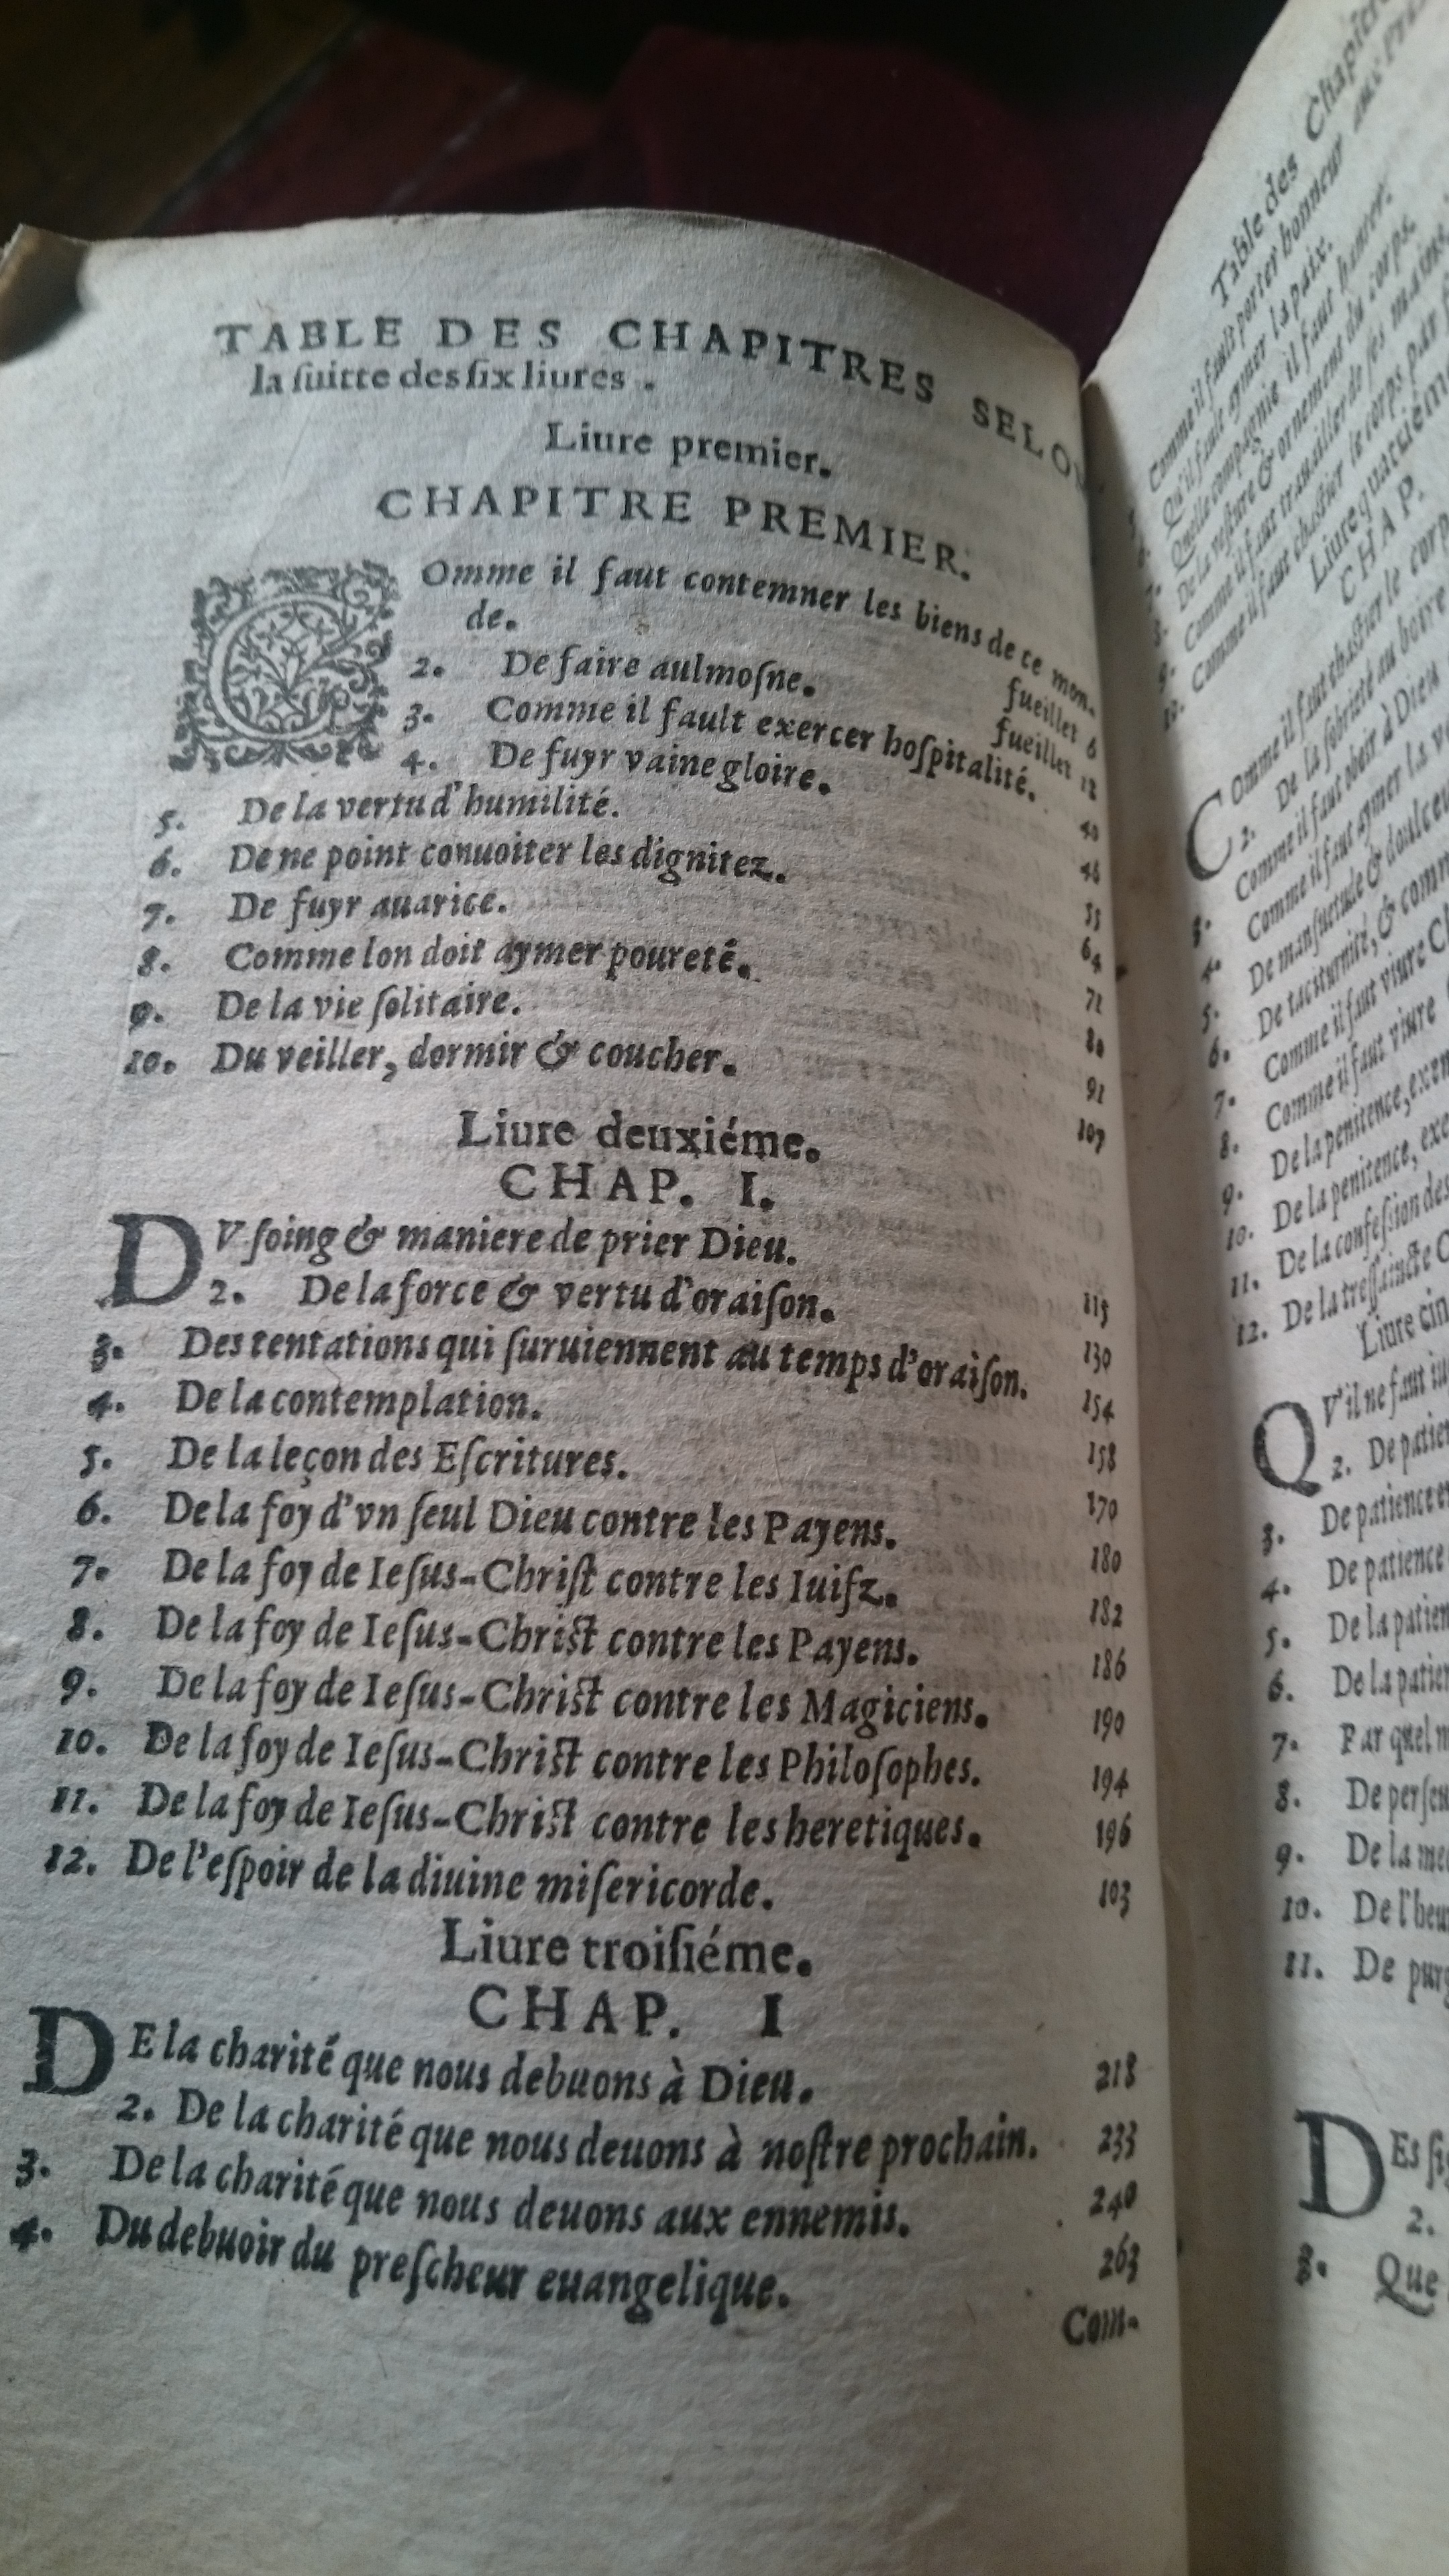 TABLE DES CHAPITRES SELON
la ſuitte des ſix liures .
Liure premier.
CHAPITRE PREMIER.
COmme il faut contemner les biens de ce mon-
de. fueillet 6
2. De faire aulmoſne. fueillet 12
3. Comme il fault exercer hoſpitalité. 40
4. De fuyr vaine gloire. 46
5. De la vertu d'humilité. 55
6. De ne point conuoiter les dignitez. 64
7. De fuyr auarice. 71
8. Comme lon doit aymer poureté. 80
9. De la vie ſolitaire. 91
10. Du veiller, dormir & coucher. 107
Liure deuxiéme.
CHAP. I.
DV ſoing & maniere de prier Dieu. 115
2. De la force & vertu d'oraiſon. 130
3. Des tentations qui ſuruiennent au temps d'oraiſon. 154
4. De la contemplation. 158
5. De la leçon des Eſcritures. 170
6. De la foy d'vn ſeul Dieu contre les Payens. 180
7. De la foy de Ieſus-Chriſt contre les Iuifz. 182
8. De la foy de Ieſus-Chriſt contre les Payens. 186
9. De la foy de Ieſus-Chriſt contre les Magiciens. 190
10. De la foy de Ieſus-Chriſt contre les Philoſophes. 194
11. De la foy de Ieſus-Chriſt contre les heretiques. 196
12. De l'eſpoir de la diuine miſericorde. 103
Liure troiſiéme.
CHAP. I
DE la charité que nous debuons à Dieu. 218
2. De la charité que nous deuons à noſtre prochain. 233
3. De la charité que nous deuons aux ennemis. 240
4. Du debuoir du preſcheur euangelique. 263
Com-
Table des Chapitre
Comme il fault porter honneur
Qu'il fault aymer la paix.
Quelle compagnie il faut hanter.
De la veſture & ornement du corps.
Comme il faut trauailler de ſes mains
Comme il faut chaſtier le corps par
Liure quatriéme
CHAP.
COmme il faut chaſtier le corp
2. De la ſobrieté au boire
3. Comme il faut obeir à Dieu
4. Comme il faut aymer la v
5. De manſuetude & doulceu
6. De taciturnité, & comm
7. Comme il faut viure C
8. Comme il faut viure
9. De la penitence, exem
10. De la penitence, exe
11. De la confeſsion des
12. De la treſſaincte C
Liure cin
QV'il ne faut iu
2. De patien
3. De patience e
4. De patience
5. De la patien
6. De la patien
7. Par quel m
8. De perſeu
9. De la me
10. De l'heu
11. De purg
DEs ſi
2.
3. Que